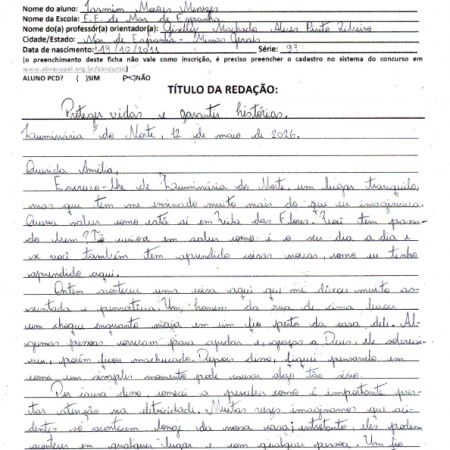 Nome do aluno: Iasmim Mages Menezes
Nome da Escola: E.E. de Mar de Espanha
Nome do(a) professor(a) orientador(a): Machado Alves Pinto Ribeiro
Cidade/Estado: Mar de Espanha - Minas Gerais
Data de nascimento: 19/10/2011 Série: 9º
(o preenchimento desta ficha não vale como inscrição, é preciso preencher o cadastro no sistema do concurso em
www.abracopel.org.br/concurso)
ALUNO PCD? ( )SIM (X)NÃO
TÍTULO DA REDAÇÃO:
Proteger vidas e garantir histórias.
Luminária do Norte, 12 de maio de 2026.
Querida Amélia,
Escrevo-lhe de Luminária do Norte, um lugar tranquilo,
mas que tem me ensinado muito mais do que eu imaginava.
Queria saber como está aí em Vila das Flores. Você tem passa-
do bem? em saber como é o seu dia a dia e
se você também tem aprendido coisas novas, como eu tenho
aprendido aqui.
Ontem aconteceu uma coisa aqui que me deixou muito as-
sustada e pensativa. Um homem da rua de cima levou
um choque enquanto mexia em um fio perto da casa dele. Al-
gumas pessoas correram para ajudar e, graças a Deus, ele sobrevi-
veu, porém ficou machucado. Depois disso, fiquei pensando em
como um simples momento pode causar algo tão sério.
Por causa disso comecei a perceber como é importante pres-
tar atenção na eletricidade. Muitas vezes imaginamos que aci-
dentes só acontecem longe da nossa casa; entretanto, eles podem
acontecer em qualquer lugar e com qualquer pessoa. Um fio